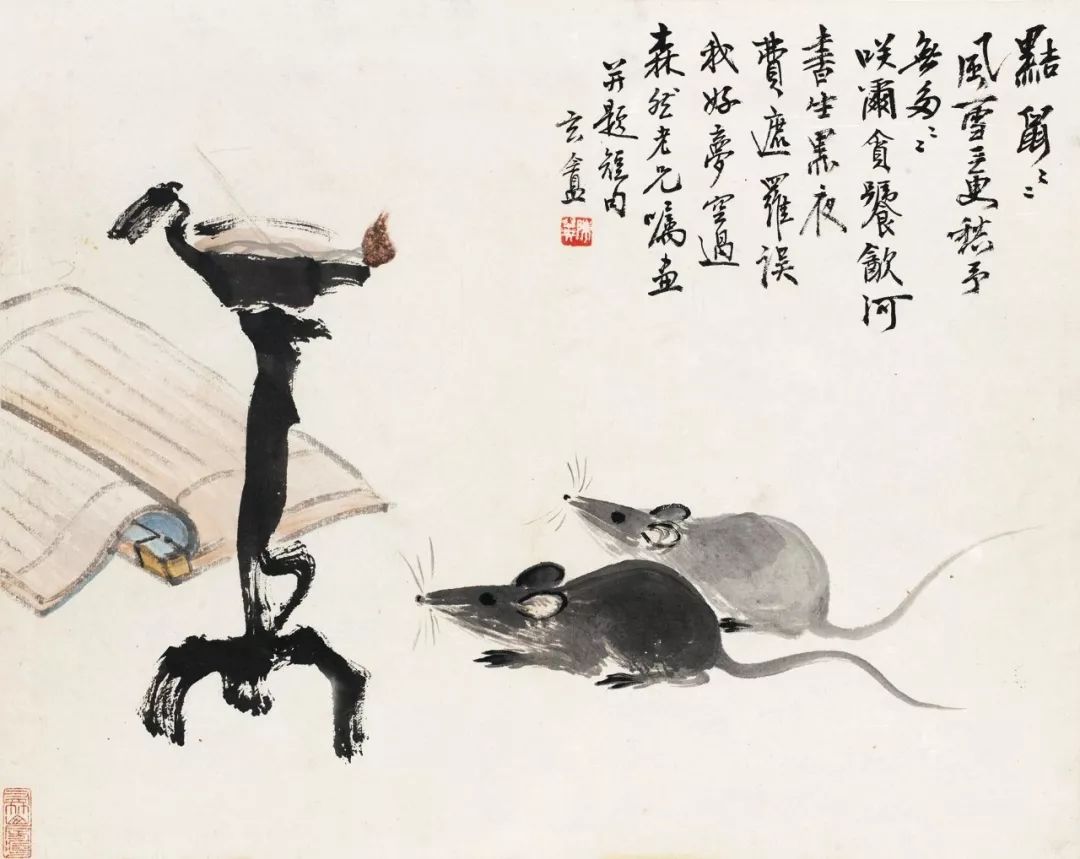 黠鼠〻
風雪三更愁予
無多〻
咲爾貪饕飲河
書生黑夜
費遮羅誤
我好夢空過
森然老兄囑畫
并題短句
玄盦